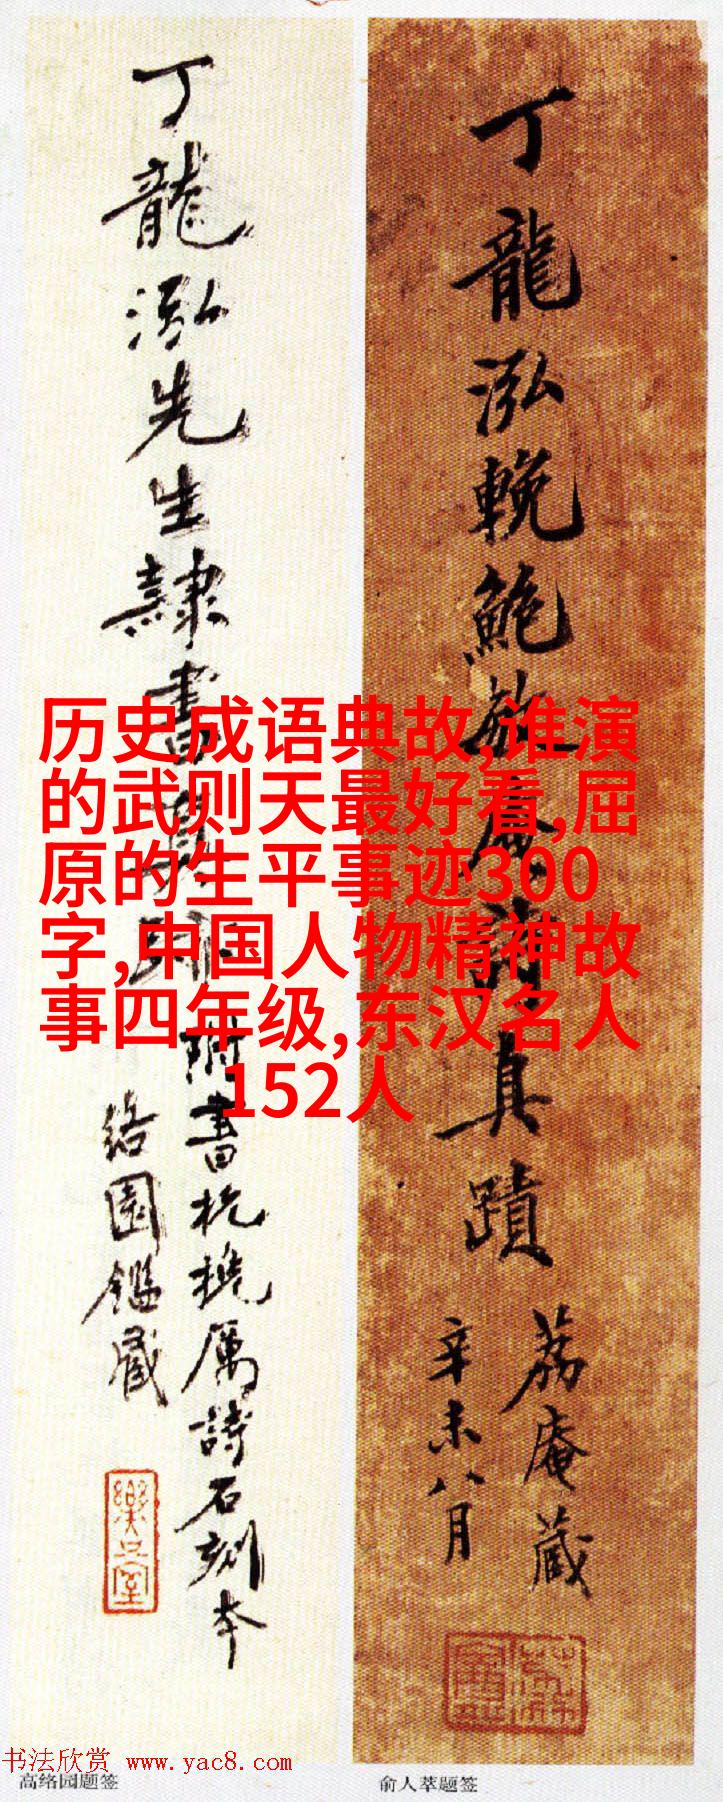 丁龍泓輓鮑
真蹟
辛未八月
荔庵蔵
丁龍泓先生隷書
書杭樊厲詩石刻本
絡園鑑蔵
历史成语典故,谁演
的武则天最好看,屈
原的生平事迹300
字,中国人物精神故
事四年级,东汉名人
152人
书法欣赏 www.yac8.com
高络园题签
俞人萃题签